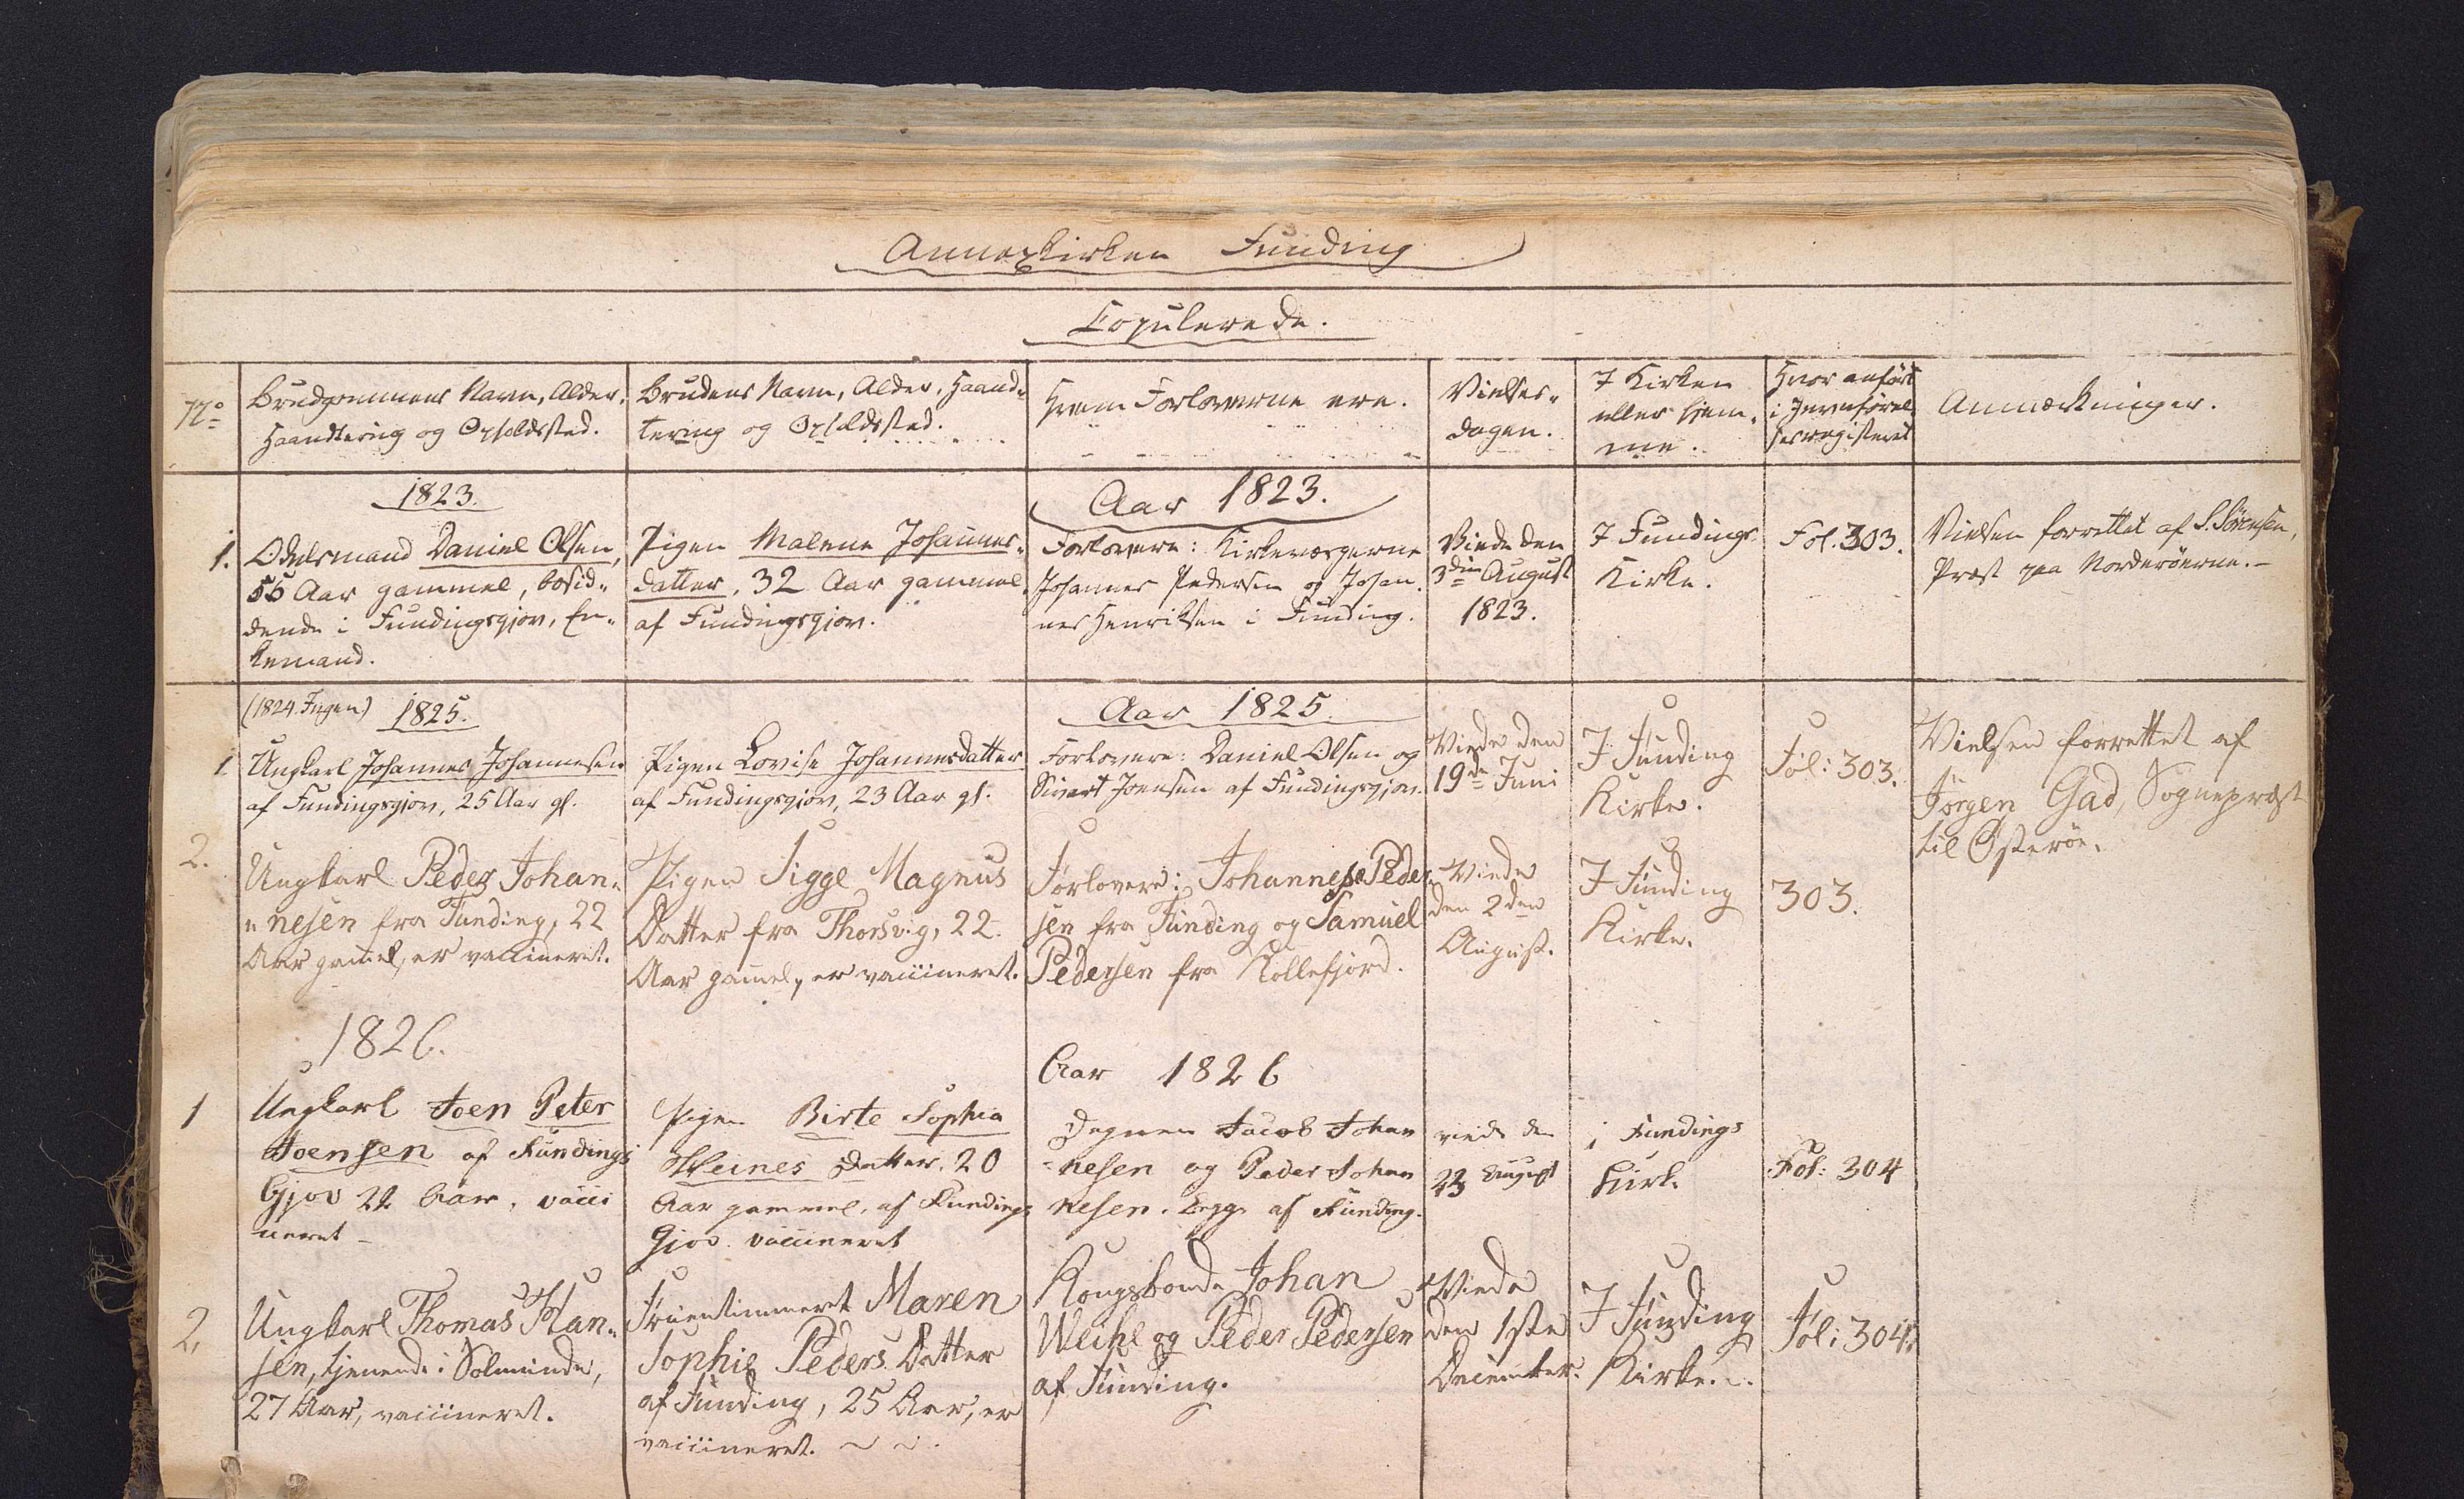 Annexkirken Funding
Copulerede.
No
Brudgommens Navn, Alder,
Haandtering og Opholdsted.
Brudens Navn, Alder, Haand-
tering og Opholdsted.
Hvem Forloverne ere.
Vielses-
dagen.
I Kirken
eller Hjem-
me.
Hvor anført
i Jevnførel
sesregisteret
Anmærkninger.
1823.
Aar 1823.
1.
Odelsmand Daniel Olsen,
55 Aar gammel, bosid-
dende i Fundingsgjov, En-
kemand.
Pigen Malene Johannes-
datter, 32 Aar gammel,
af Fundingsgjov.
Forlovere: Kirkeværgerne
Johannes Pedersen og Johan-
nes Henriksen i Funding.
Viede den
3die August
1823.
I Fundings
Kirke.
Fol. 303.
Vielsen forrettet af S. Sörensen,
Præst paa Norderöerne.-
(1824. Ingen) 1825.
Aar 1825.
1
Ungkarl Johannes Johannesen
af Fundingsgjov, 25 Aar gl.
Pigen Lovise Johannesdatter
af Fundingsgjov, 23 Aar gl.
Forlovere: Daniel Olsen og
Sivert Joensen af Fundingsgjov.
Viede den
19de Juni
I Funding
Kirke.
Fol: 303.
Vielsen forrettet af
Jørgen Gad, Sognepræst
til Østerøe.
2.
Ungkarl Peder Johan-
nesen fra Funding, 22
Aar gamel, er vaccineret.
Pigen Sigge Magnus
Datter fra Thorsvig, 22
Aar gamel, er vaccineret.
Forlovere: Johannes Peder-
sen fra Funding og Samuel
Pedersen fra Kollefjord.
Viede
den 2den
August.
I Funding
Kirke.
303.
1826.
Aar 1826
1
Ungkarl Joen Peter
Joensen af Fundings
Gjov 22 Aar, vacci
neret -
Pigen Birte Sophia
Heines Datter, 20
Aar gammel, af Fundings
Gjov. vaccineret
Degnen Jacob Johan
nesen og Peder Johan
nesen. Begge af Funding.
viede den
23 August
i Fundings
Kirke
Fol: 304
2.
Ungkarl Thomas Han-
sen, tjenende i Solmunde,
27 Aar, vaccineret.
Fruentimmeret Maren
Sophie Peders Datter
af Funding, 25 Aar, er
vaccineret.
Kongsbonde Johan
Weihe og Peder Pedersen
af Funding.
Viede
den 1ste
December.
I Funding
Kirke.
Fol: 304.